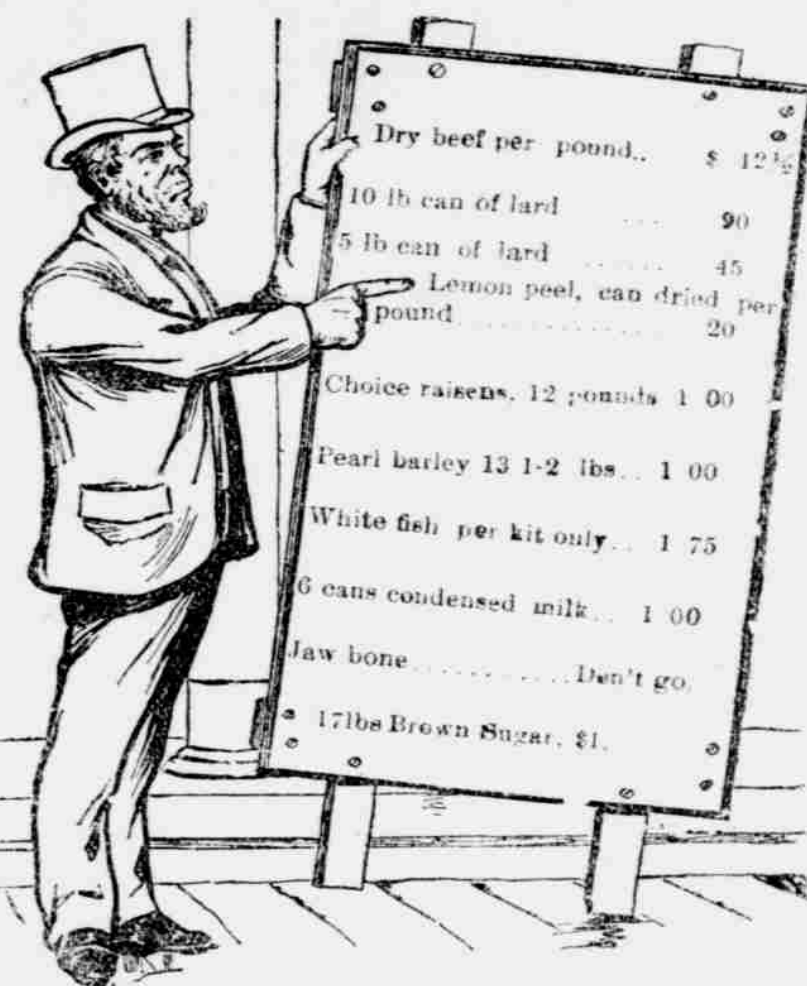 Dry beef per pound.. $ 12½
10 lb can of lard ... 90
5 lb can of lard ...... 45
Lemon peel, can dried per
pound ................ 20
Choice raisens, 12 pounds 1 00
Pearl barley 13 1-2 lbs.. 1 00
White fish per kit only.. 1 75
6 cans condensed milk.. 1 00
Jaw bone............Den't go.
17lbs Brown Sugar, $1.